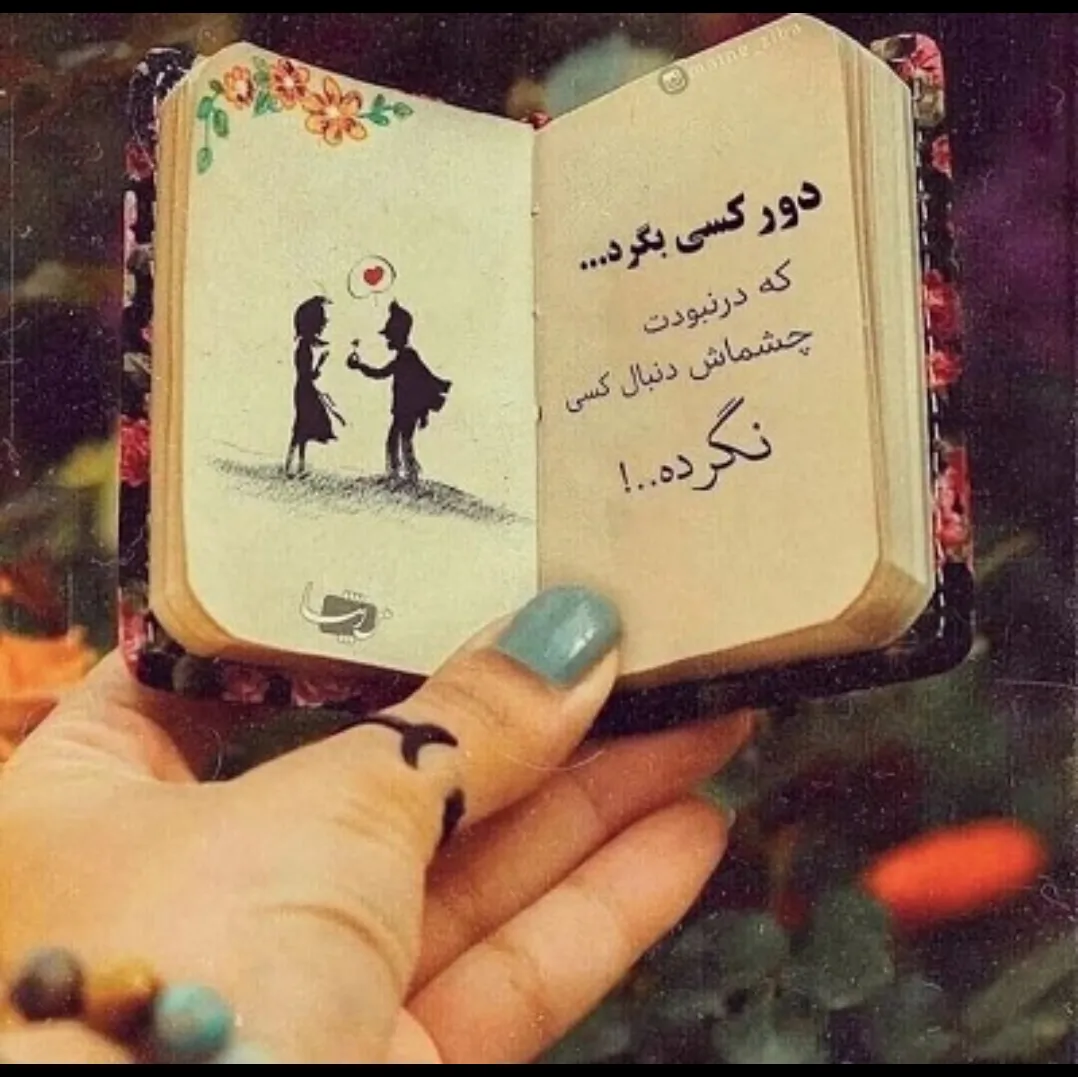 دور کسی بگرد...
که درنبودت
چشماش دنبال کسی
نگرده..!